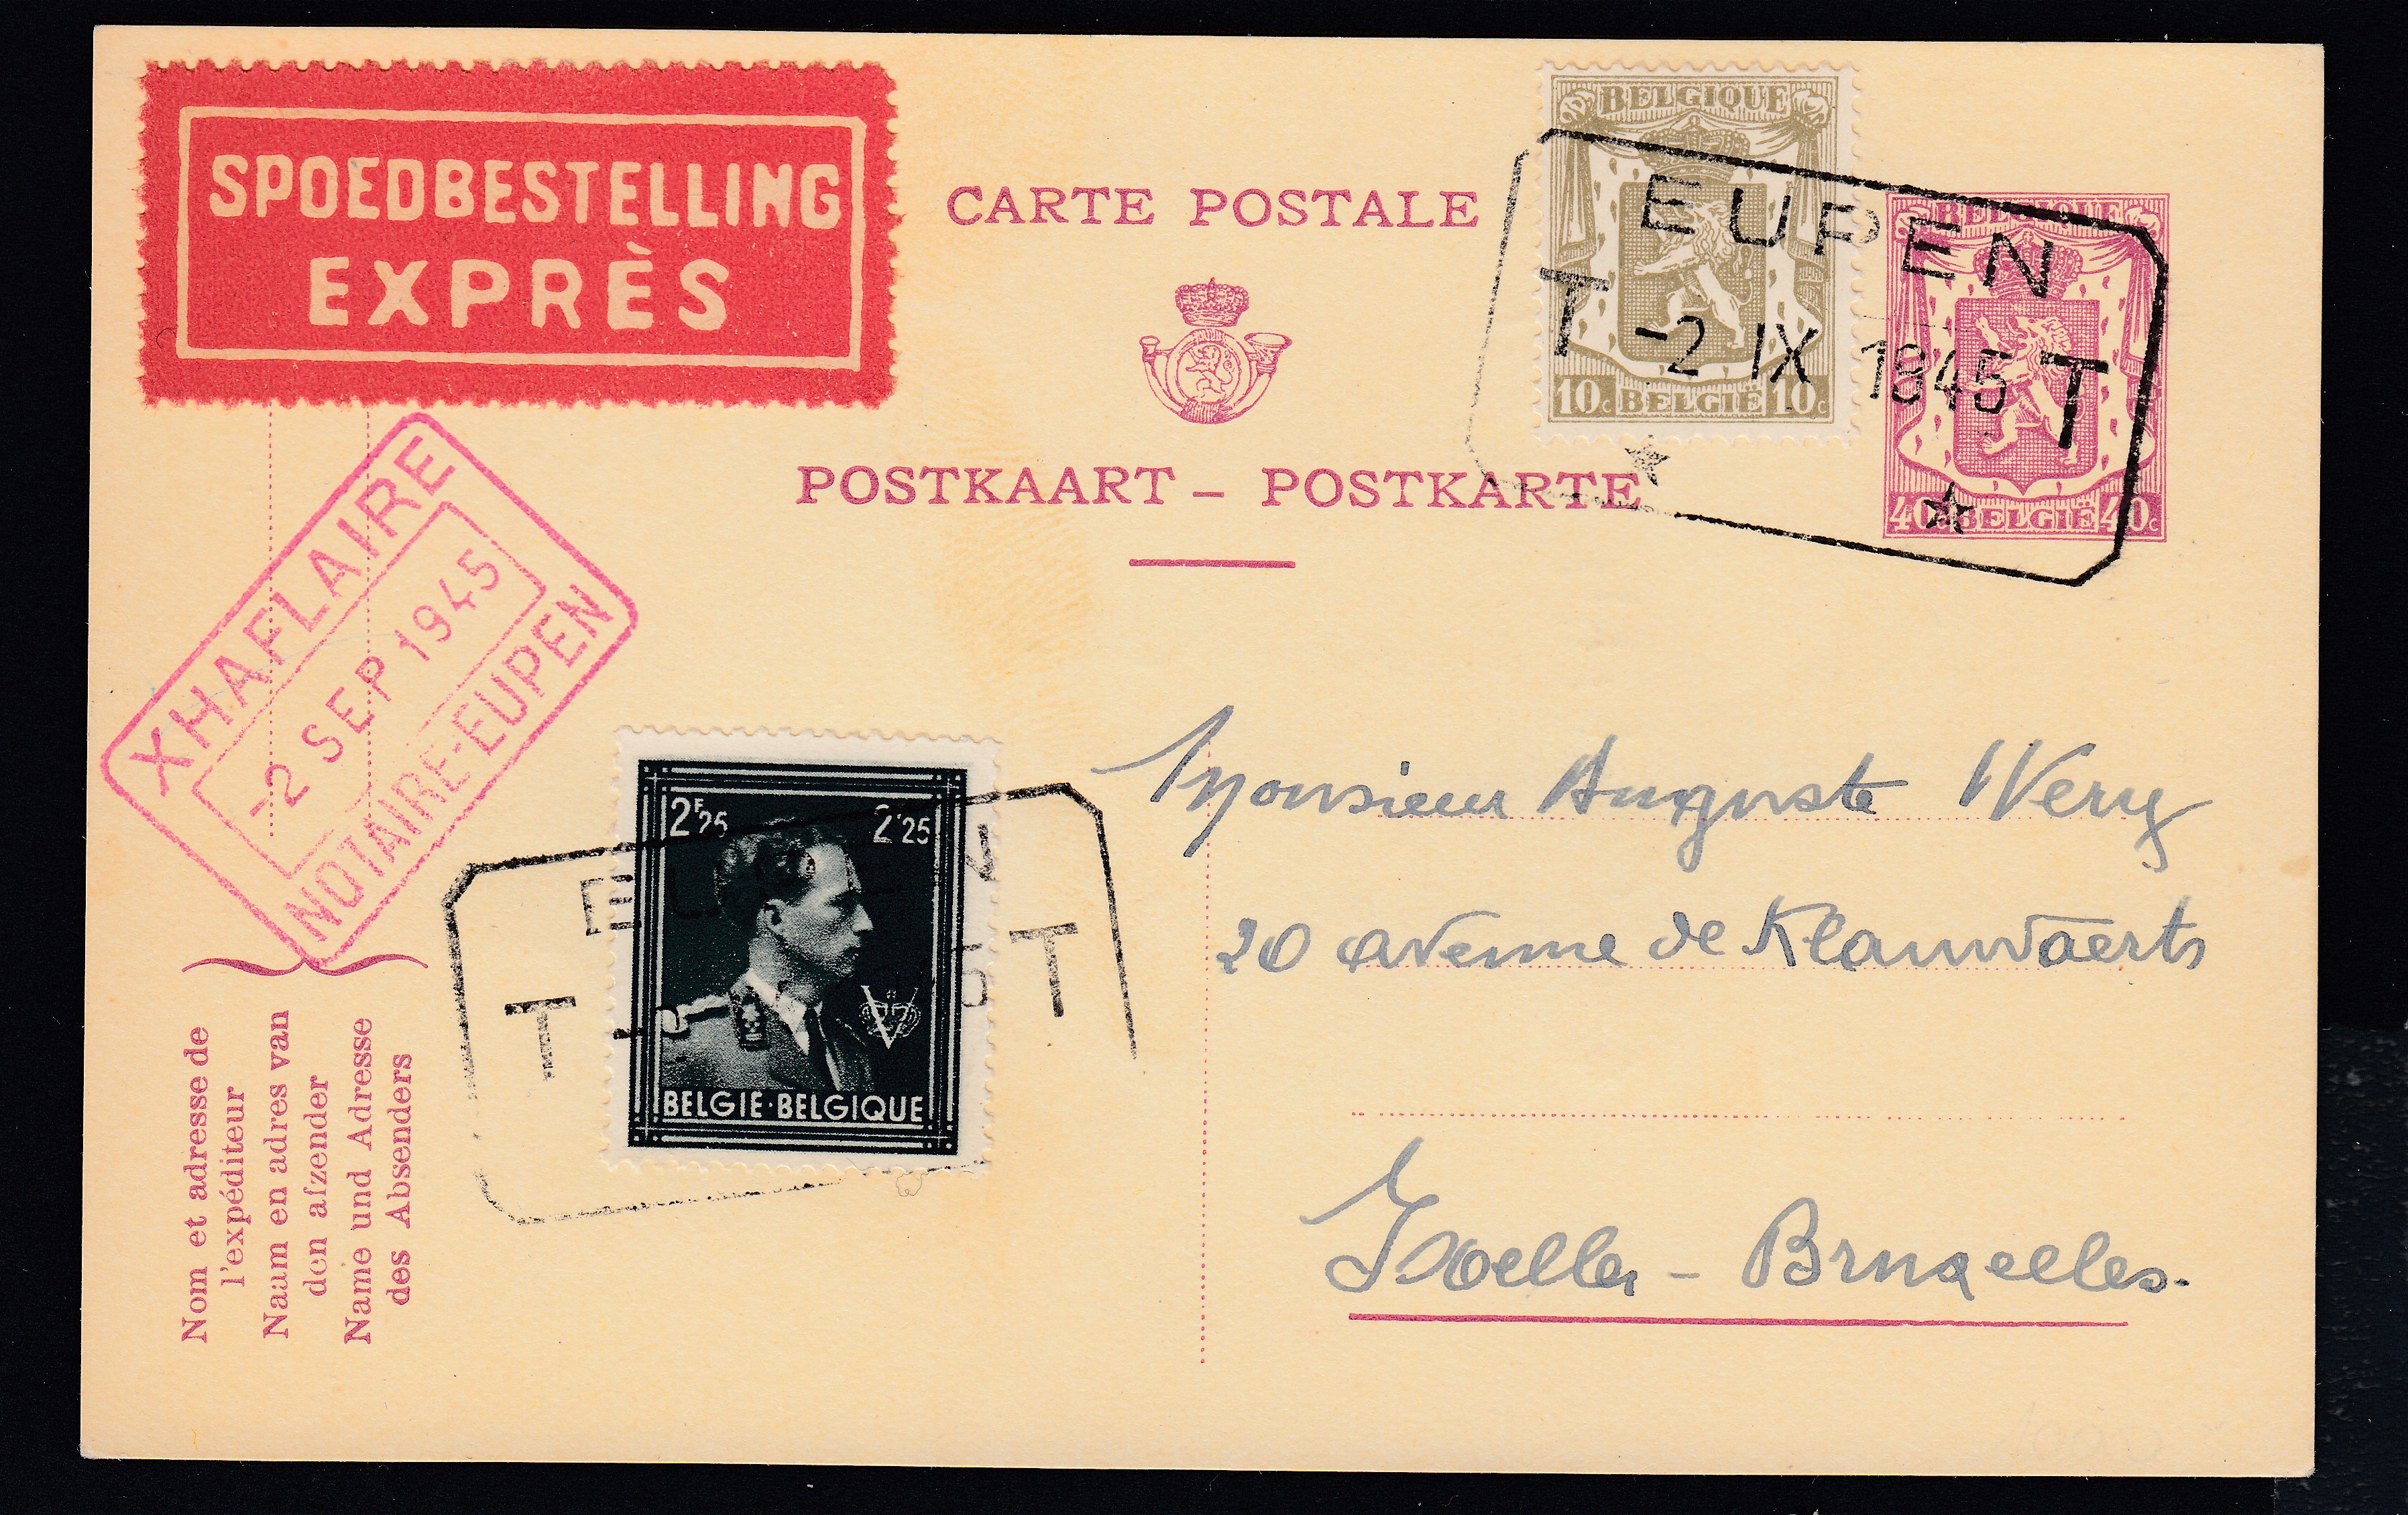 SPOEDBESTELLING
EXPRÈS
CARTE POSTALE
POSTKAART – POSTKARTE
BELGIQUE
10c BELGIË 10c
BELGIQUE
40c BELGIË 40c
EUPEN
T -2 IX 1945 T
XHAFLAIRE
-2 SEP 1945
NOTAIRE-EUPEN
2F25 2F25
BELGIE·BELGIQUE
T T
Monsieur Auguste Wery
20 avenue de Klauwaerts
Ixelles - Bruxelles.
Nom et adresse de
l'expéditeur
Naam en adres van
den afzender
Name und Adresse
des Absenders